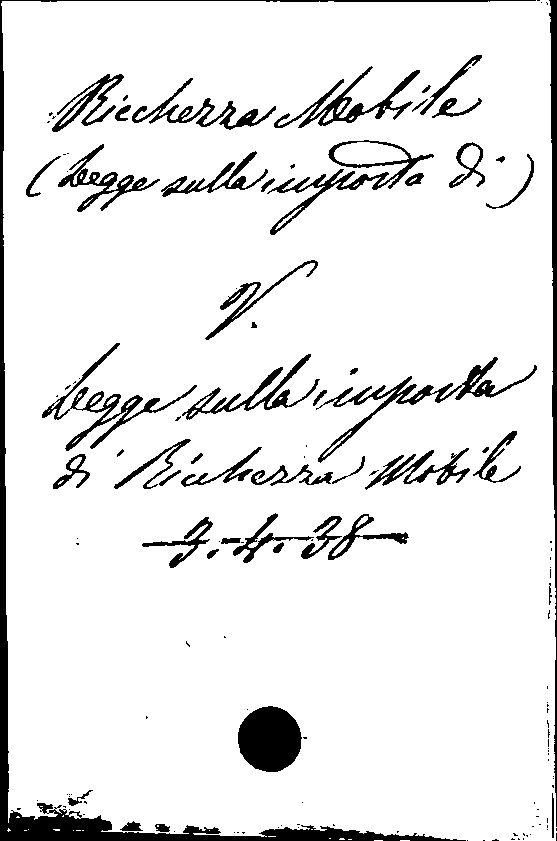 Ricchezza Mobile
(Legge sulla imposta di)
V.
Legge sulla imposta
di Ricchezza Mobile
3.4.38